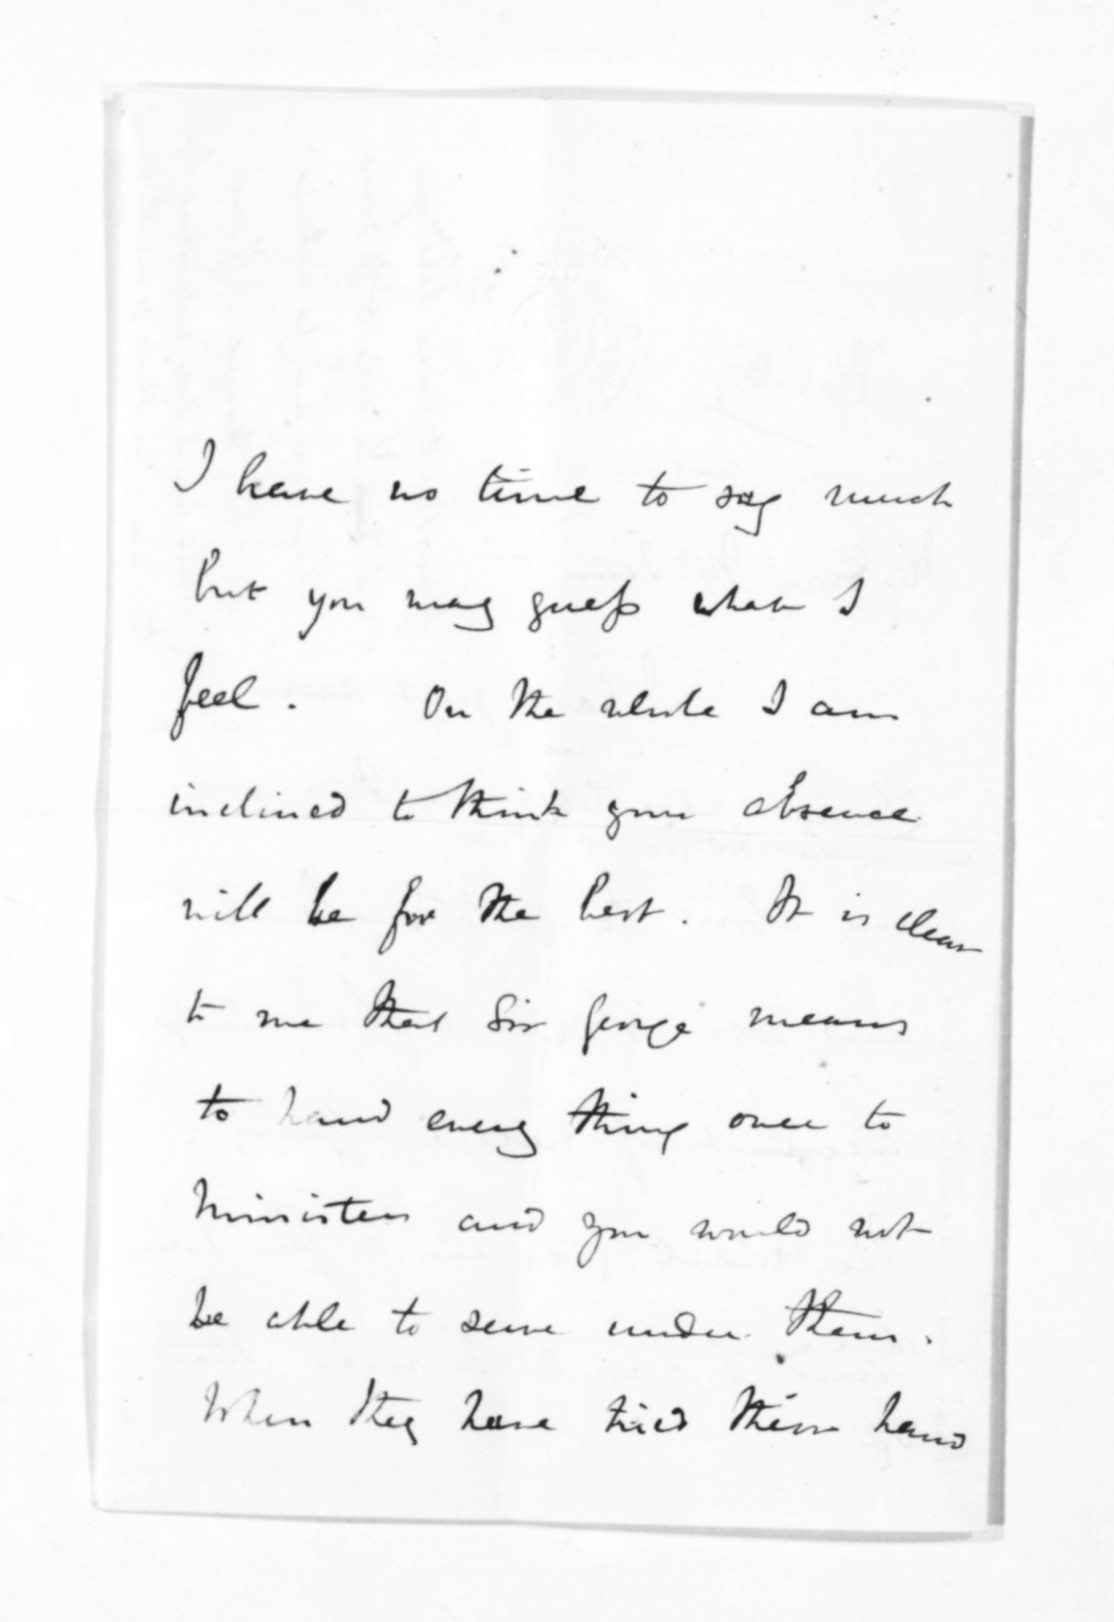 I have no time to say much
but you may guess what I
feel. On the whole I am
inclined to think your absence
will be for the best. It is clear
to me that Sir George means
to hand every thing over to
Ministers and you would not
be able to serve under them.
When they have tried their hand